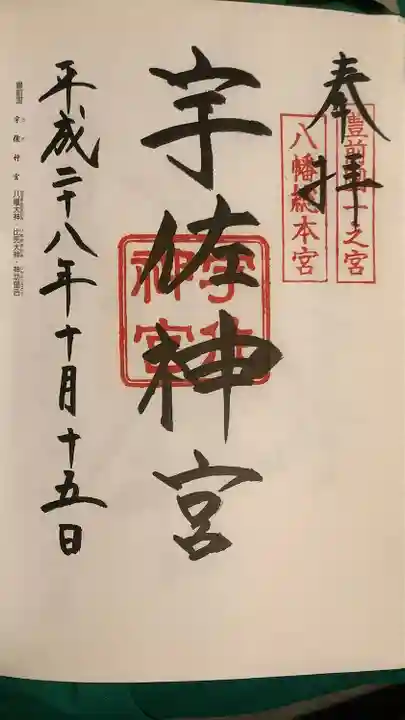 奉拝
豊前国一之宮
八幡総本宮
宇佐神宮
宇佐神宮
平成二十八年十月十五日
豊前国 宇佐神宮 八幡大神・比売大神・神功皇后